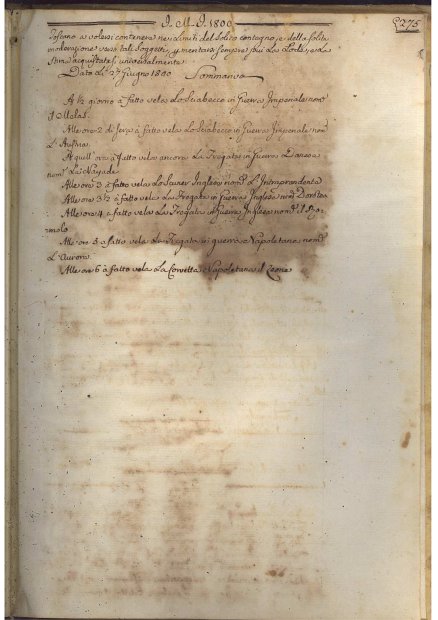 I. M. I. 1800
275
Toscano a volersi contenere ne Limiti del Solito contegno, e della solita
moderazione verso tali Soggetti, p meritarsi sempre più La Lode, e La
Stima acquistatasi universalmente.
Data Li 27 Giugno 1800 Sommariva
A ½ giorno à fatto vela Lo Sciabecco in Guerra Imperiale nom.º
Il Melas.
Alle ore 2 di Sera à fatto vela Lo Sciabecco in Guerra Imperiale nom.º
L'Austria.
A quell'ora à fatto vela ancora La Fregata in Guerra
nom.ª La Nayade.
Alle ore 3 à fatto vela Lo Inglese nom.º L'Intraprendente
Alle ore 3½ à fatto vela La Fregata in Guerra Inglese nom.ª
Alle ore 4 à fatto vela La Fregata di Guerra Inglese nom.ª il
Alle ore 5 à fatto vela La Fregata di guerra Napoletana nom.ª
L'Aurora.
Alle ore 6 à fatto vela La Corvetta Napoletana il